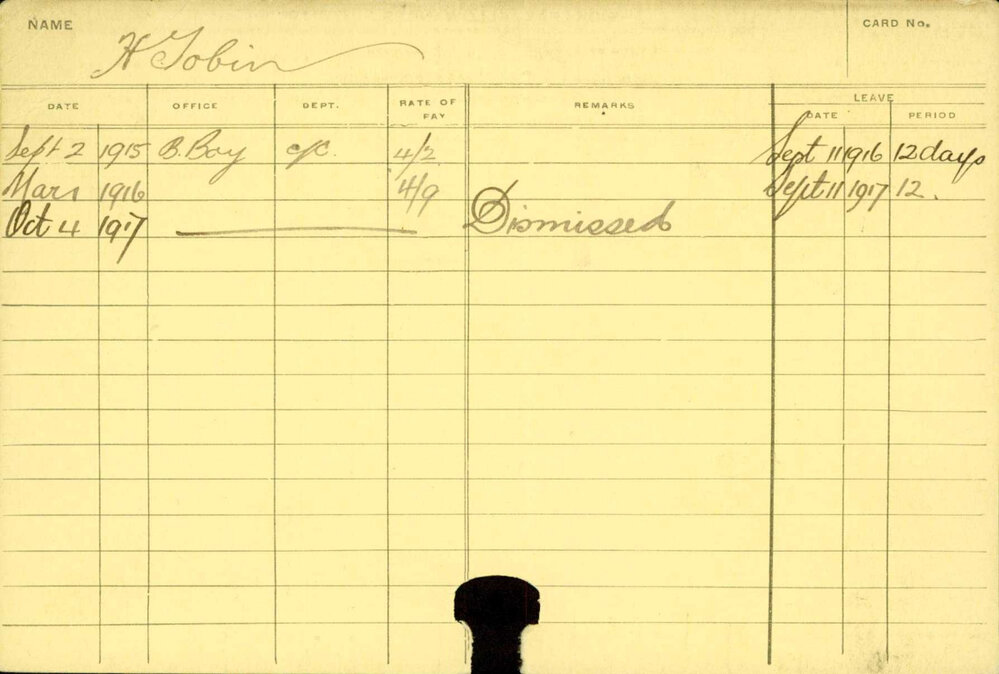 NAME
CARD No.
H Tobin
DATE OFFICE DEPT. RATE OF PAY REMARKS LEAVE
DATE PERIOD
Sept 2 1915 B. Boy c/c. 4/2 Sept 11 1916 12 days
Mar 1916 4/9 Sept 11 1917 12.
Oct 4 1917 Dismissed